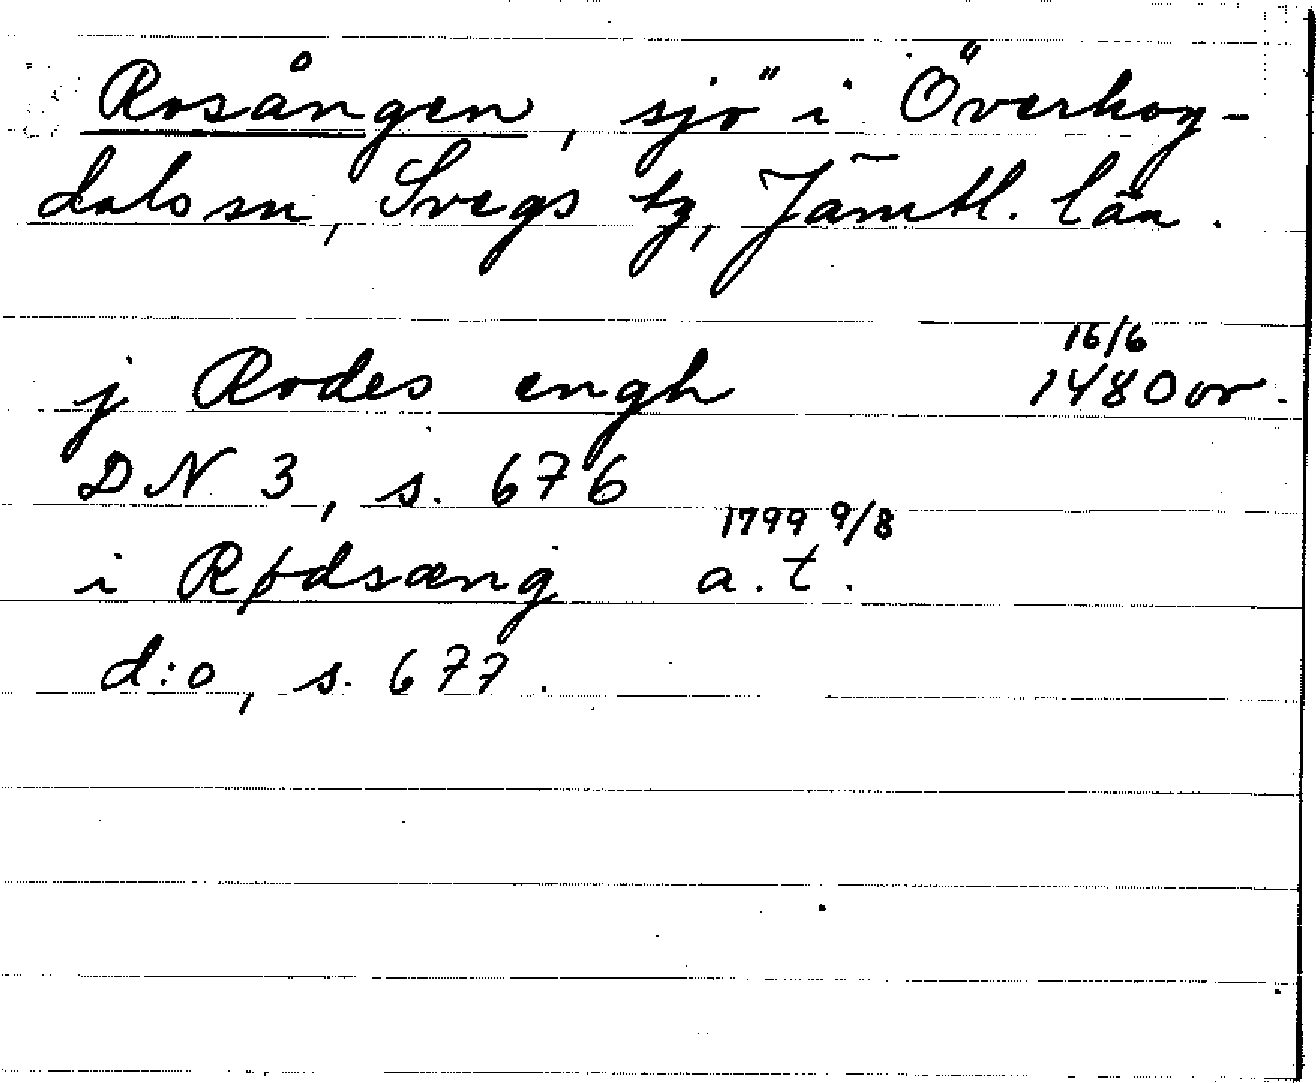 Rosången, sjö i Överhog-
dals sn, Svegs tg, Jämtl. län.
16/6
j Rodes engh 1480 or.
DN 3, s. 676
1799 9/8
i Rødsæng a.t.
d:o, s. 677.